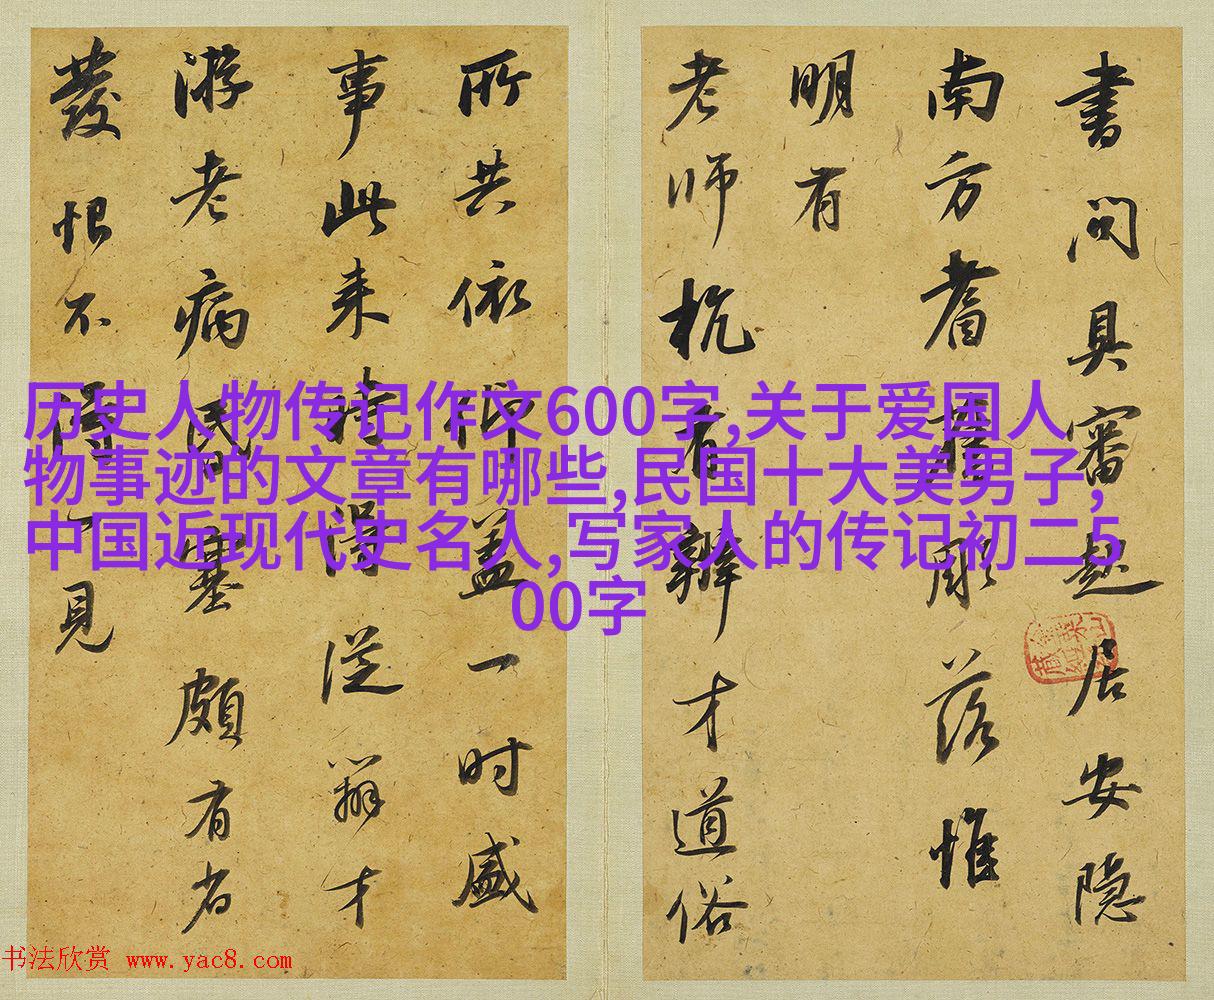 書問具審起居安隱
南方耆舊彫落惟
明有
老師杭有辯才道俗
所共依仰蓋一時盛
事此來時得從辯才
游老病昏塞頗有省
發恨不得見
历史人物传记作文600字,关于爱国人
物事迹的文章有哪些,民国十大美男子,
中国近现代史名人,写家人的传记初二5
00字
书法欣赏 www.yac8.com